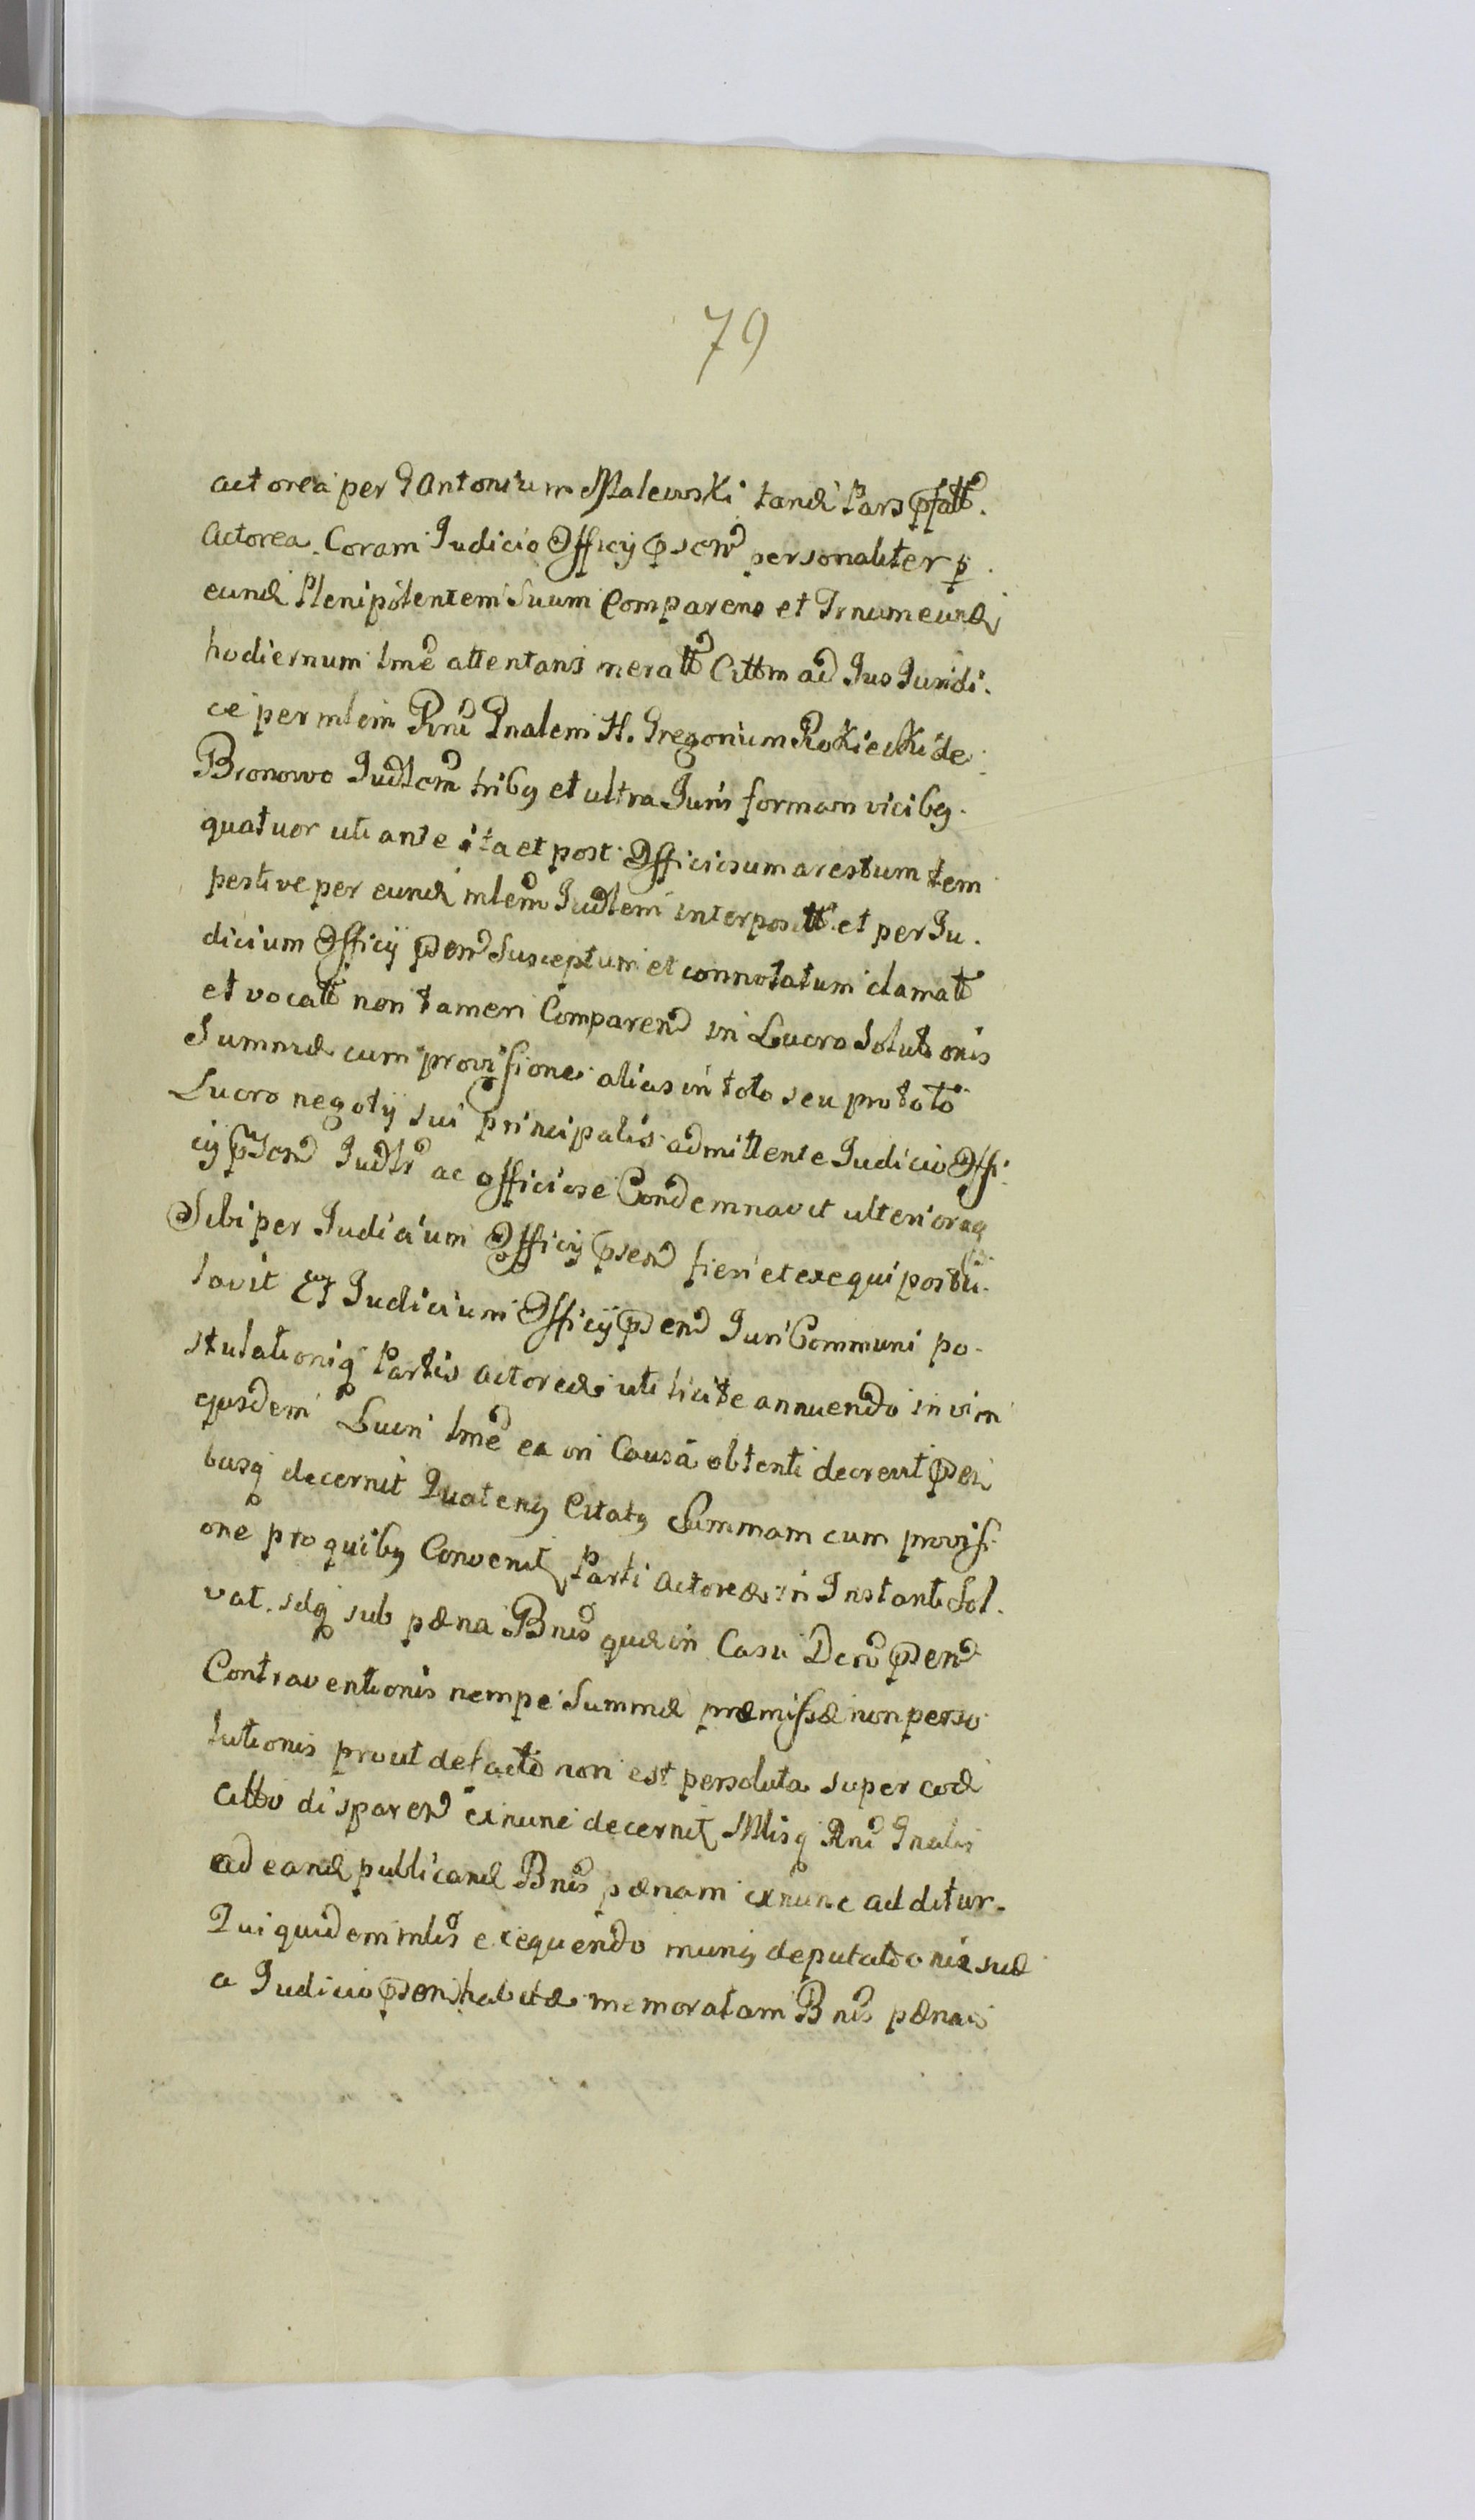 79
actorea per G Antonium Malewski tand Pars pfatt.
Actorea. Coram Judicio Officy psen personaliter p.
eund Plenipotentem Suum Comparens et Trnum eund
hodiernum lme attentans neratt Cittm ad Jus Juridi.
ce per mlem Rni Gnalem H. Gregorium Rokicki de
Bronowo Judlem tribg et ultra Juris formam vicibg.
quatuor uti ante ita et post Officiosum arestum tem
pestive per eund mlem Judlem interposit et per Ju.
dicium Officy psen Susceptum et connotatum clamatt
et vocatt non tamen Comparen in Lucro Solutionis
Summæ cum provisione alias in toto seu pro toto
Lucro negoty sui principalis admittente Judicio Offi.
cy psen Judlr ac officiose Condemnavit ulteriorag
Sibi per Judicium Officy psen fieri et exequi postu.
lavit Et Judicium Officy psen Juri Communi po-
stulationiq Partis actoreæ uti licite annuendo in vim
ejusdem Lucri lme ea in Causa obtenti decrevit psen
busq decernit Quateng Citatg Summam cum provisi
one pro quibg Convenit, Parti Actoreæ in Instanti Sol.
vat. sdq sub pæna Bnis quæ in Casu Dcri psen
Contraventionis nempe Summæ præmissæ non perso
lutionis prout de facto non est persoluta super eod
citto disparen exnunc decernit Mlisq Rni Gnalis
ad eand publicand Bnis pænam exnunc additur.
Qui quidem mlis exequendo mung deputationis suæ
a Judicio psen habitæ memoratam Bnis pænam